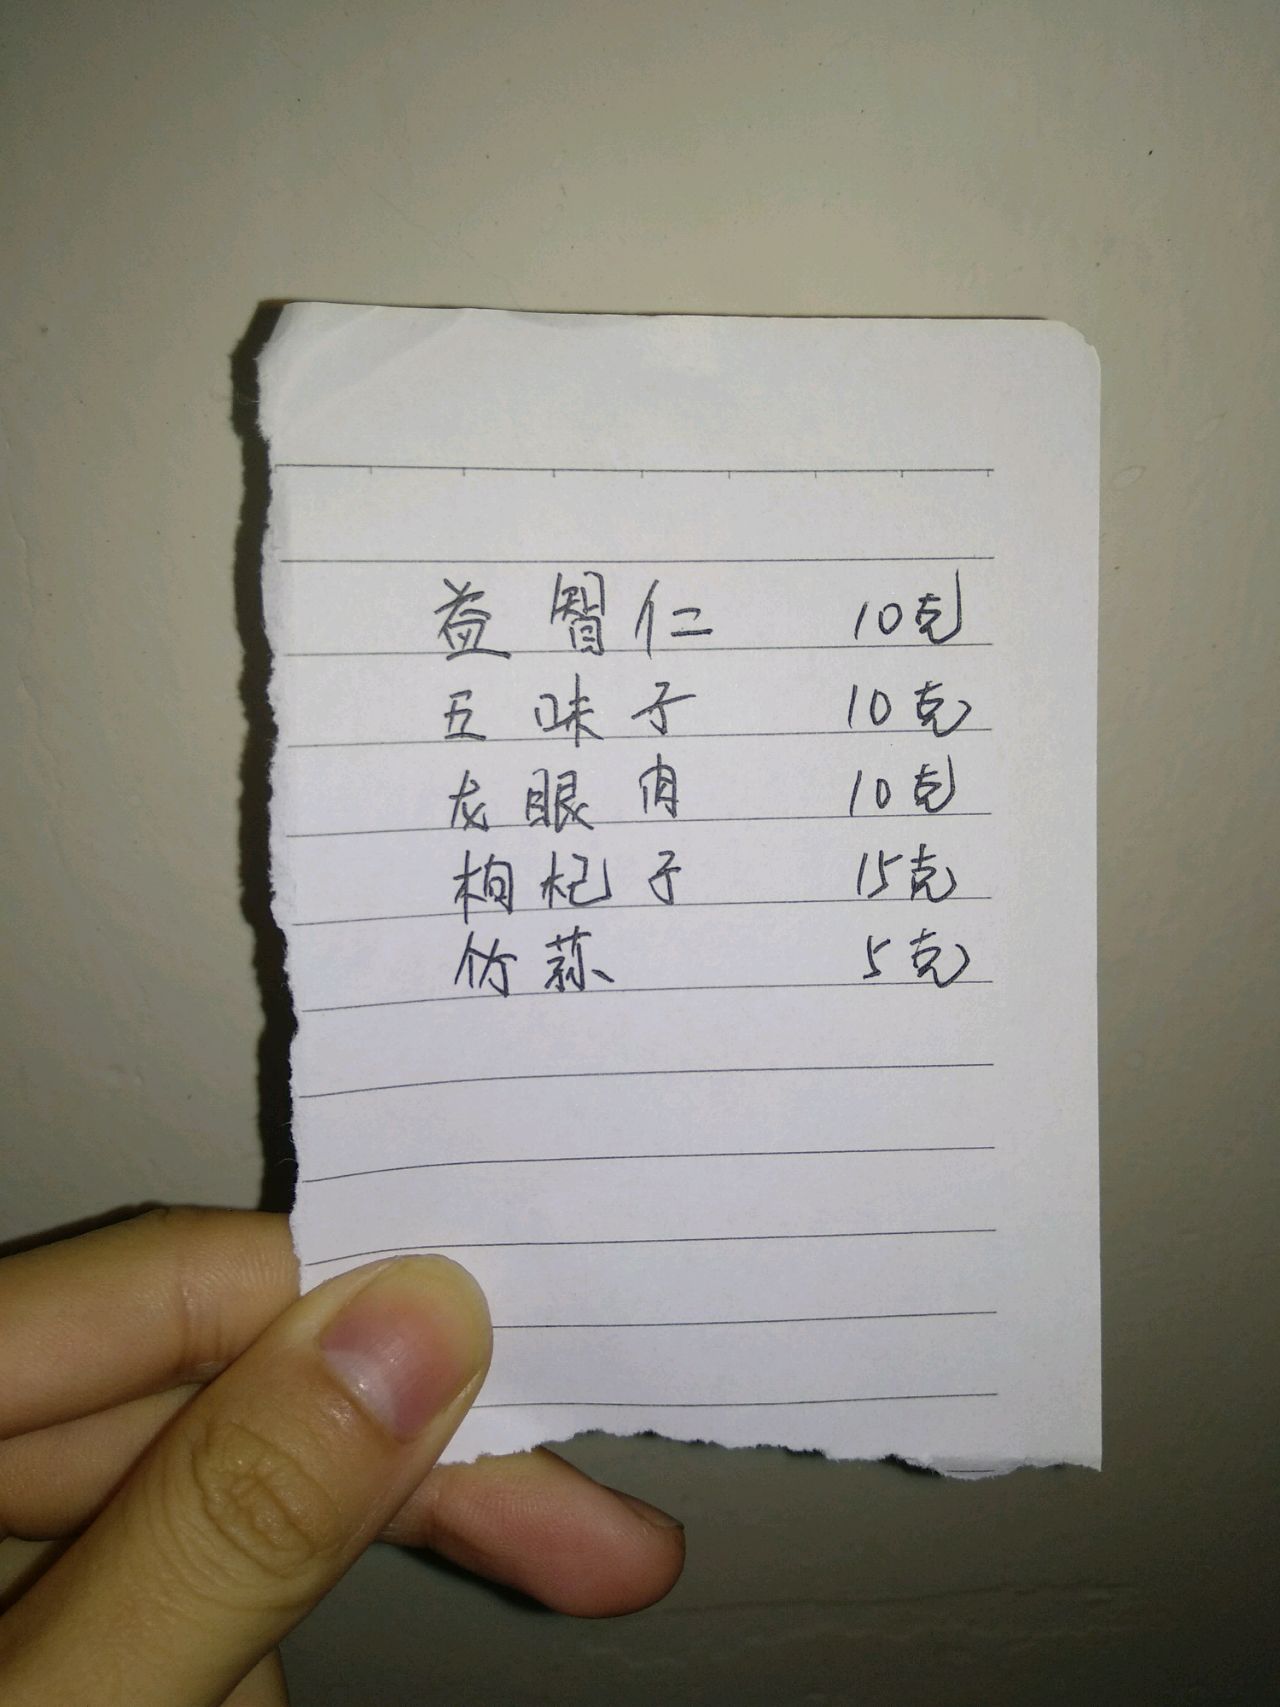 益智仁 10克
五味子 10克
龙眼肉 10克
枸杞子 15克
竹荪 5克